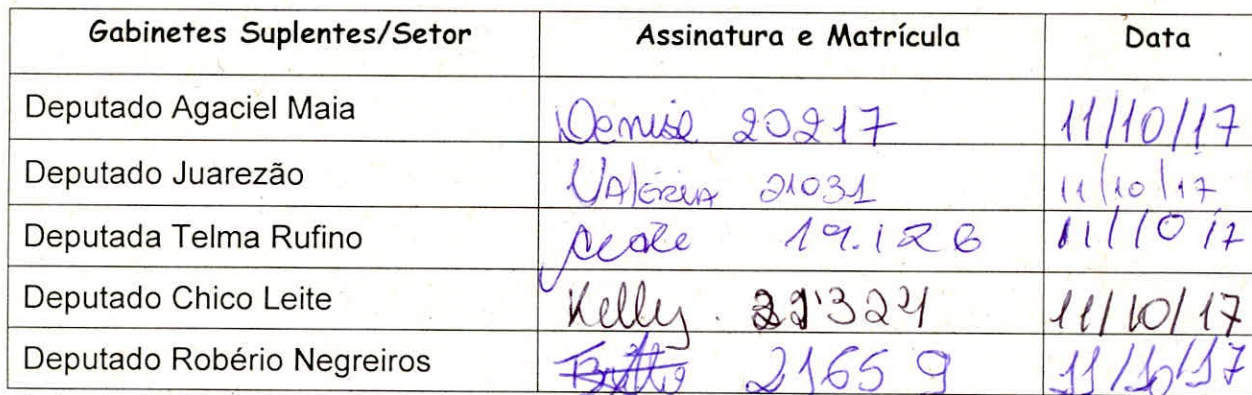 Gabinetes Suplentes/Setor Assinatura e Matrícula Data
Deputado Agaciel Maia Denise 20217 11/10/17
Deputado Juarezão Valéria 21031 11/10/17
Deputada Telma Rufino 19.126 11/10/17
Deputado Chico Leite Kelly 22324 11/10/17
Deputado Robério Negreiros 21659 11/10/17